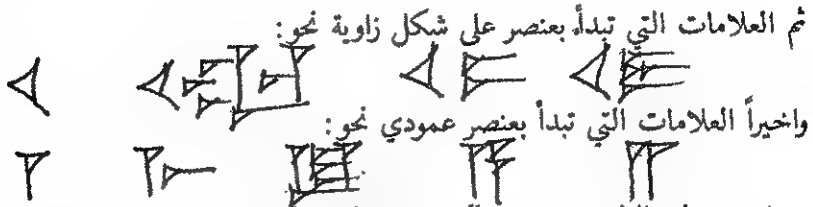 ثم العلامات التي تبدأ بعنصر على شكل زاوية نحو:
𒌋
واخيراً العلامات التي تبدأ بعنصر عمودي نحو:
𒁹 𒈨 𒀀 𒈫